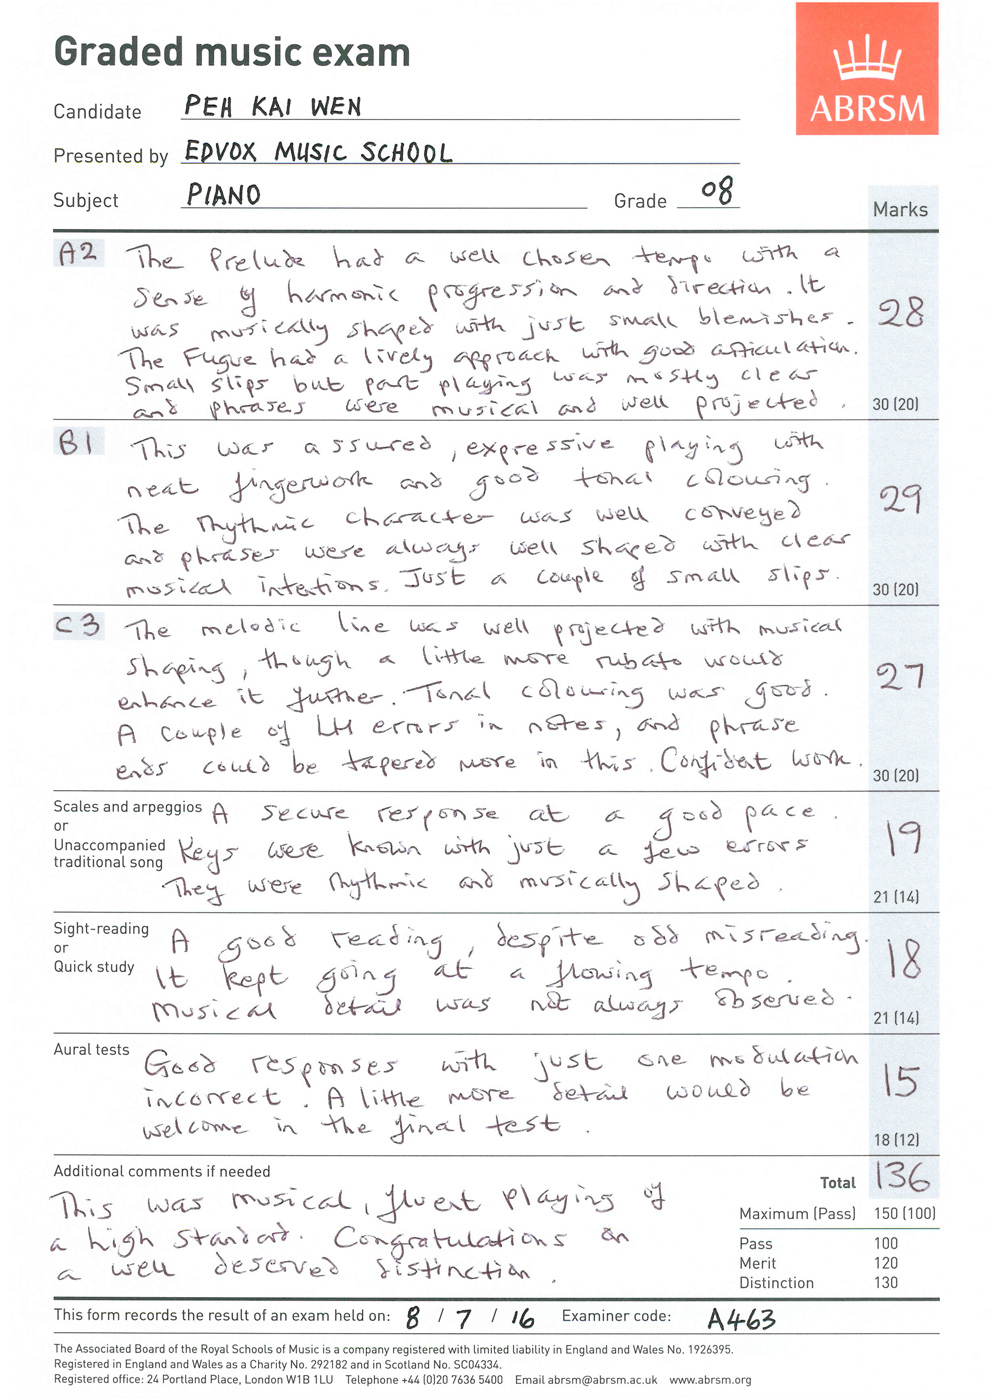 Graded music exam
ABRSM
Candidate PEH KAI WEN
Presented by EDVOX MUSIC SCHOOL
Subject PIANO Grade 08
Marks
A2 The Prelude had a well chosen tempo with a
sense of harmonic progression and direction. It
was musically shaped with just small blemishes.
The Fugue had a lively approach with good articulation.
Small slips but part playing was mostly clear
and phrases were musical and well projected.
28
30 (20)
B1 This was assured, expressive playing with
neat fingerwork and good tonal colouring.
The rhythmic character was well conveyed
and phrases were always well shaped with clear
musical intentions. Just a couple of small slips.
29
30 (20)
C3 The melodic line was well projected with musical
shaping, though a little more rubato would
enhance it further. Tonal colouring was good.
A couple of LH errors in notes, and phrase
ends could be tapered more in this. Confident work.
27
30 (20)
Scales and arpeggios
or
Unaccompanied
traditional song
A secure response at a good pace.
Keys were known with just a few errors
They were rhythmic and musically shaped.
19
21 (14)
Sight-reading
or
Quick study
A good reading, despite odd misreading.
It kept going at a flowing tempo.
Musical detail was not always observed.
18
21 (14)
Aural tests
Good responses with just one modulation
incorrect. A little more detail would be
welcome in the final test.
15
18 (12)
Additional comments if needed
This was musical, fluent playing of
a high standard. Congratulations on
a well deserved distinction.
Total 136
Maximum (Pass) 150 (100)
Pass 100
Merit 120
Distinction 130
This form records the result of an exam held on: 8 / 7 / 16 Examiner code: A463
The Associated Board of the Royal Schools of Music is a company registered with limited liability in England and Wales No. 1926395.
Registered in England and Wales as a Charity No. 292182 and in Scotland No. SC04334.
Registered office: 24 Portland Place, London W1B 1LU Telephone +44 (0)20 7636 5400 Email abrsm@abrsm.ac.uk www.abrsm.org